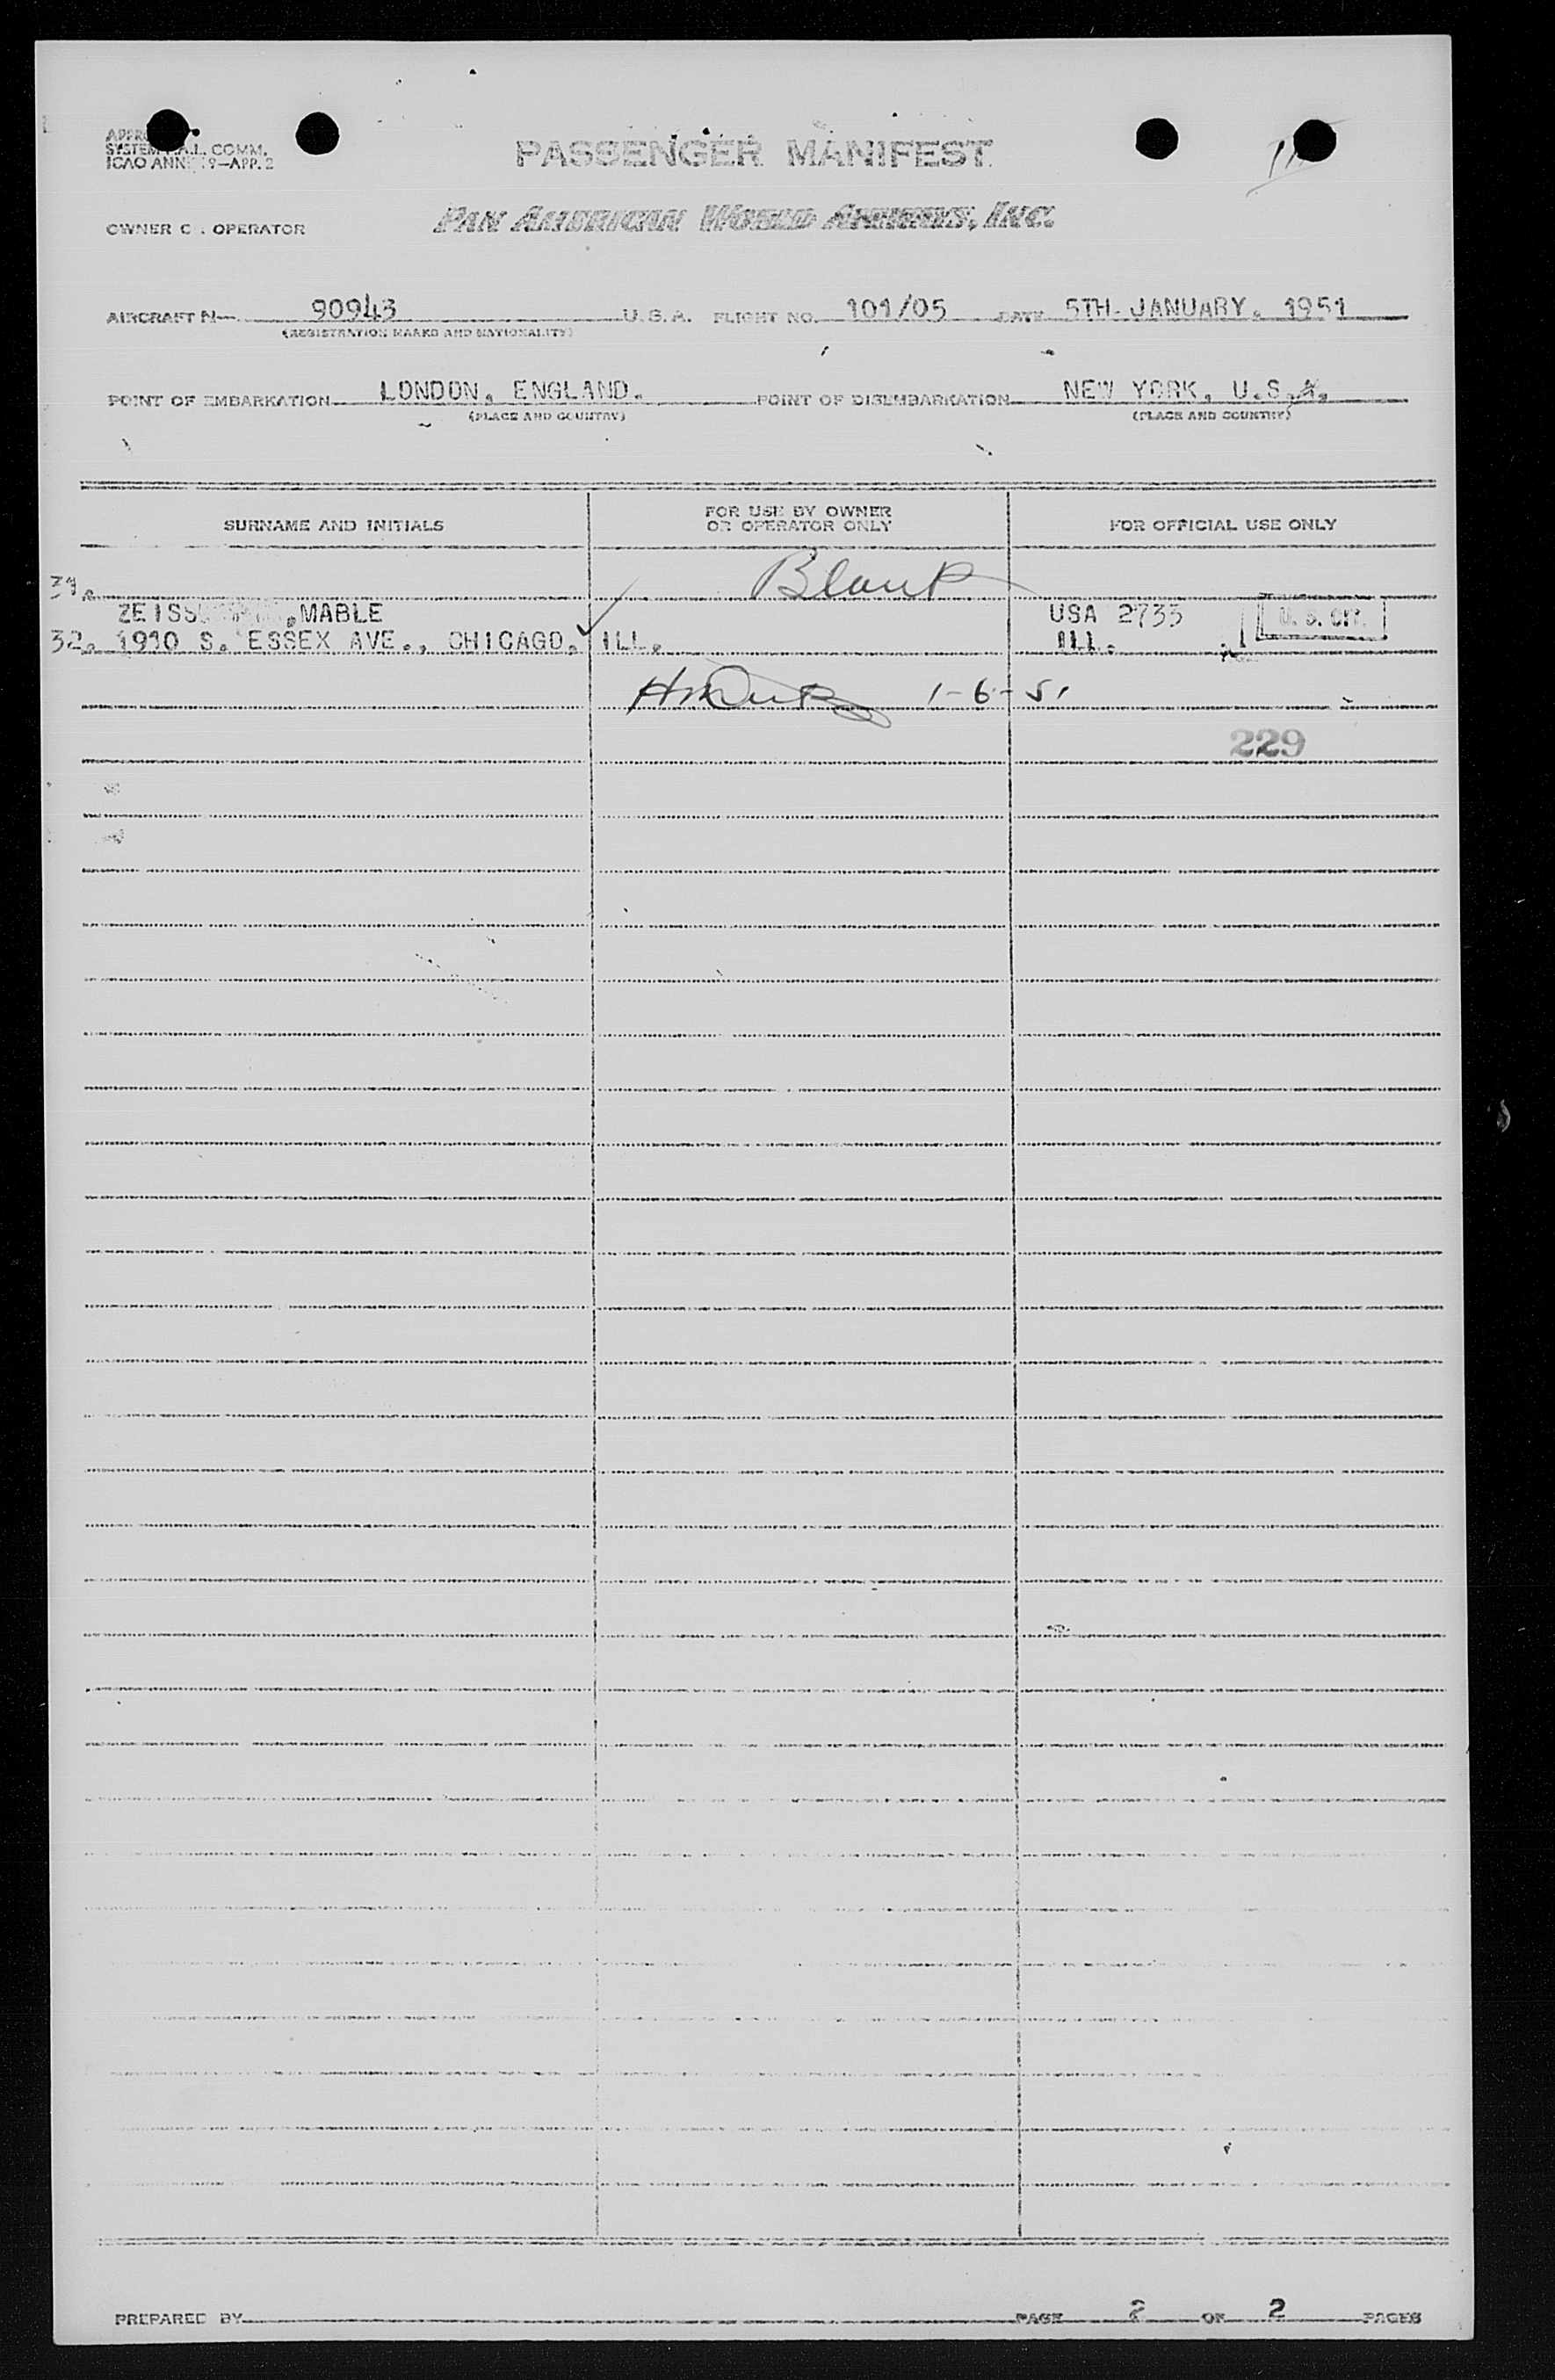 SYSTEM
ICAO ANN 9—APP. 2
PASSENGER MANIFEST
OWNER OPERATOR
PAN AMERICAN WORLD AIRWAYS, INC.
AIRCRAFT N— 90943 U. S. A. FLIGHT NO. 101/05 DATE 5TH. JANUARY. 1951
(REGISTRATION MARKS AND NATIONALITY)
POINT OF EMBARKATION LONDON, ENGLAND. POINT OF DISEMBARKATION NEW YORK, U.S.A.
(PLACE AND COUNTRY) (PLACE AND COUNTRY)
SURNAME AND INITIALS
FOR USE BY OWNER
OR OPERATOR ONLY
FOR OFFICIAL USE ONLY
31. Blank
ZEISS ,MABLE USA 2735 U. S. CIT.
32. 1910 S. ESSEX AVE., CHICAGO, ILL. ILL.
1-6-51
229
PREPARED BY PAGE 2 OF 2 PAGES